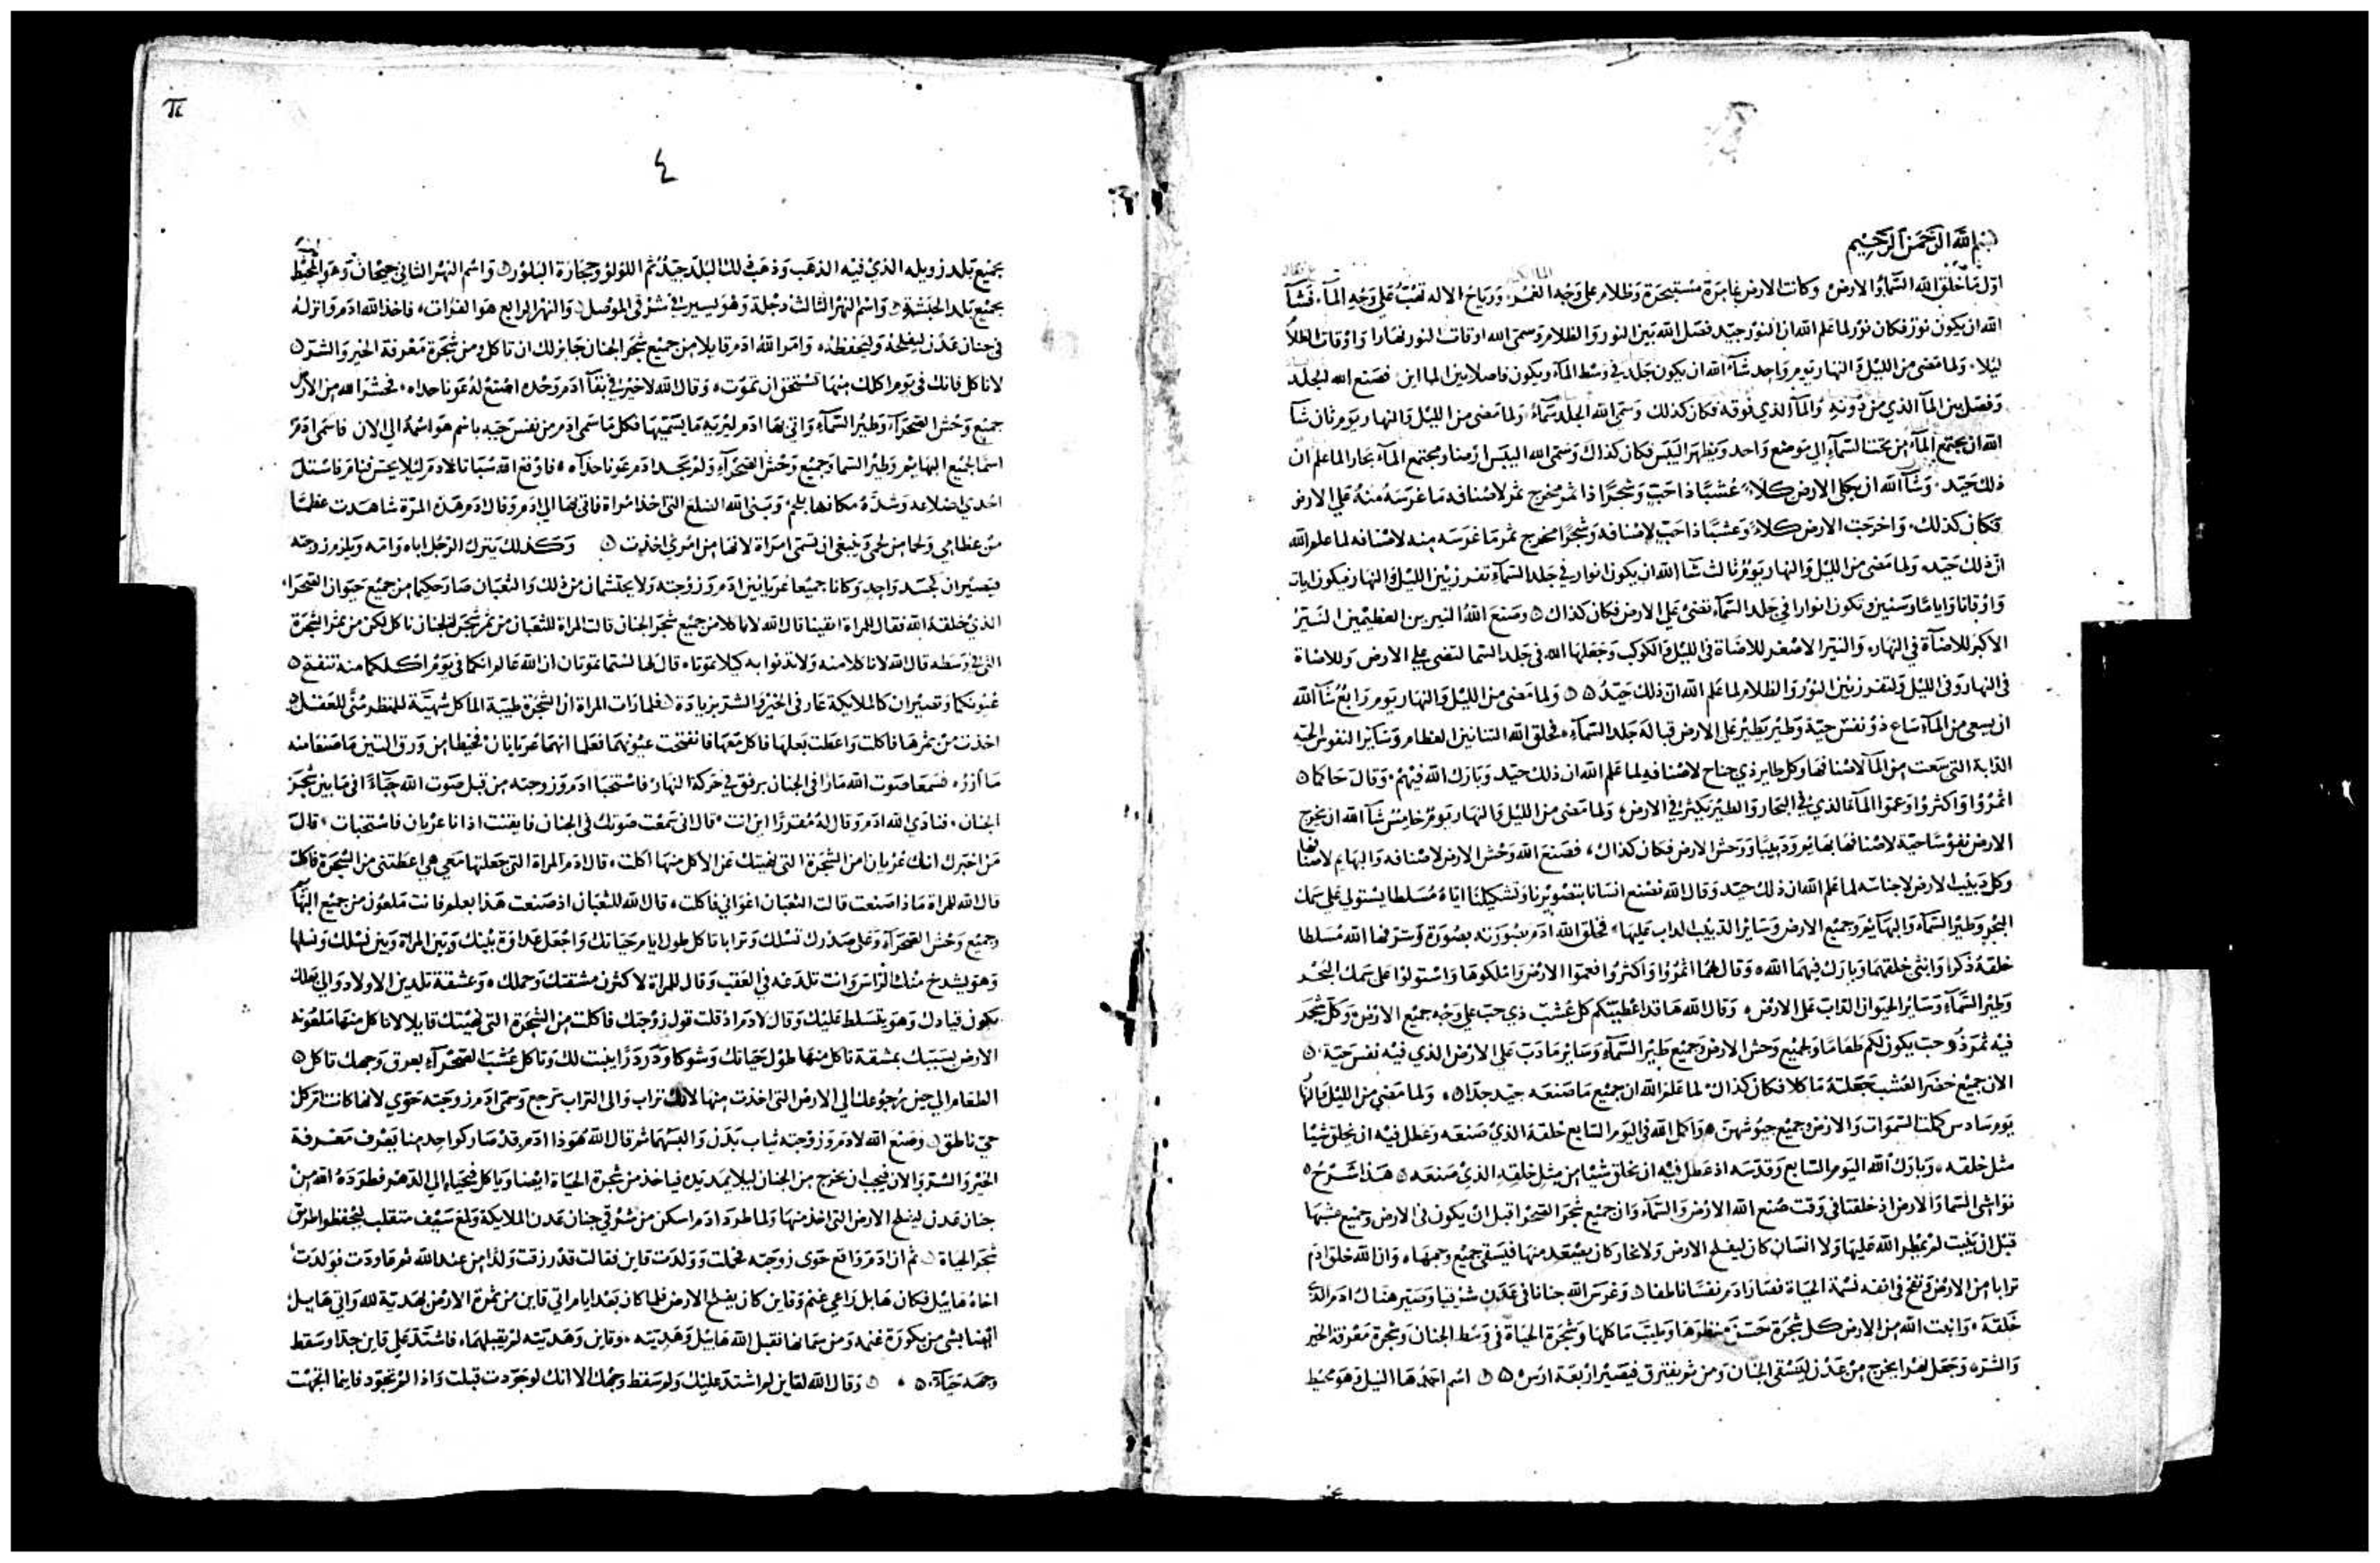 بسم الله الرحمن الرحيم
اول ما خلق الله السماء والارض وكانت الارض غامرة مستبحرة وظلام على وجه الغمر ورياح الاله تهب على وجه الماء فشاء
الله ان يكون نور فكان نور لما علم الله ان النور جيد فصل الله بين النور والظلام وسمى الله اوقات النور نهارا واوقات الظلام
ليلا ولما مضى من الليل والنهار يوم واحد شاء الله ان يكون جلد في وسط الماء ويكون فاصلا بين الماين فصنع الله الجلد
وفصل بين الماء الذي من دونه والماء الذي فوقه فكان كذلك وسمى الله الجلد سماء ولما مضى من الليل والنهار يوم ثان شاء
الله ان يجتمع الماء من تحت السماء الي موضع واحد ويظهر اليبس فكان كذاك وسمى الله اليبس ارضا ومجتمع الماء بحارا لما علم ان
ذلك جيد وشاء الله ان يكلى الارض كلاء عشبا ذا حب وشجرا ذا ثمر مخرج ثمر لاصنافه ما غرسه منه علي الارض
فكان كذلك واخرجت الارض كلاء وعشبا ذا حب لاصنافه وشجرا مخرج ثمر ما غرسه منه لاصنافه لما علم الله
ان ذلك جيد ولما مضى من الليل والنهار يوم ثالث شا الله ان يكون انوار في جلد السماء تفرز بين الليل والنهار فيكون ايات
واوقاتا واياما وسنين وتكون انوارا في جلد السماء تضى على الارض فكان كذاك وصنع الله النيرين العظيمين النير
الاكبر للاضاة في النهار والنير الاصغر للاضاة في الليل والكوكب وجعلها الله في جلد السما لتضى علي الارض وللاضاة
في النهار وفى الليل ولتفرز بين النور والظلام لما علم الله ان ذلك جيد ولما مضى من الليل والنهار يوم رابع شاء الله
ان يسعى من الماء ساع ذو نفس حية وطير يطير على الارض قبالة جلد السماء فخلق الله التنانين العظام وساير النفوس الحية
الدابة التى سعت من الماء لاصنافها وكل طاير ذي جناح لاصنافه لما علم الله ان ذلك جيد وبارك الله فيهم وقال
اثمروا واكثروا وعموا الماء الذي في البحار والطير يكثر في الارض ولما مضى من الليل والنهار يوم خامس شاء الله ان يخرج
الارض نفوسا حية لاصنافها بهايم ودبيبا ووحش الارض فكان كذاك فصنع الله وحش الارض لاصنافه والبهايم لاصنافها
وكل دبيب الارض لاجناسه لما علم الله ان ذلك جيد وقال الله نصنع انسانا بتصويرنا وتشكيلنا اياه مسلطا يستولي علي سمك
البحر وطير السماء والبهايم وجميع الارض وساير الدبيب الداب عليها فخلق الله ادم بصورته بصورة شرفها الله مسلطا
خلقه ذكرا وانثى خلقهما وبارك فيهما الله وقال لهما اثمروا واكثروا فعموا الارض واملكوها واستولوا على سمك البحر
وطير السماء وساير الحيوان الداب على الارض وقال الله ها قد اعطيتكم كل عشب ذي حب علي وجه جميع الارض وكل شجر
فيه ثمر ذو حب يكون لكم طعاما ولجميع وحش الارض وجميع طير السماء وساير ما دب على الارض الذي فيه نفس حية
الان جميع خضر العشب جعلته ماكلا فكان كذاك لما علم الله ان جميع ما صنعه جيد جدا ولما مضي من الليل والنهار
يوم سادس كملت السموات والارض وجميع جيوشهن واكمل الله في اليوم السابع خلقه الذي صنعه وعطل فيه ان يخلق شيا
مثل خلقه وبارك الله اليوم السابع وقدسه اذ عطل فيه ان يخلق شيا من مثل خلقه الذي صنعه هذا شرح
نواشى السما والارض اذ خلقتا في وقت صنع الله الارض والسماء وان جميع شجر الصحرا قبل ان يكون في الارض وجميع عشبها
قبل ان ينبت لم يمطر الله عليها ولا انسان كان ليفلح الارض ولا بخار كان يصعد منها فيسقى جميع وجهها وان الله خلق ادم
ترابا من الارض ونفخ في انفه نسمة الحياة فصار ادم نفسا ناطقا وغرس الله جنانا في عدن شرقيا وصير هناك ادم الذي
خلقه وانبت الله من الارض كل شجرة حسن منظرها وطيب ماكلها وشجرة الحياة في وسط الجنان وشجرة معرفة الخير
والشر وجعل نهرا يخرج من عدن ليسقى الجنان ومن ثم يفترق فيصير اربعة ارس اسم احدها النيل وهو محيط
٤
بجميع بلد زويله الذي فيه الذهب وذهب ذلك البلد جيد ثم اللولو وحجارة البلور واسم النهر الثاني جيحان وهو المحيط
بجميع بلد الحبشة واسم النهر الثالث دجلة وهو يسير في شرقى الموصل والنهر الرابع هو الفرات فاخذ الله ادم وانزله
في جنان عدن ليفلحه وليحفظه وامر الله ادم قايلا من جميع شجر الجنان جايز لك ان تاكل ومن شجرة معرفة الخير والشر
لا تاكل فانك في يوم اكلك منها تستحق ان تموت وقال الله لا خير في بقاء ادم وحده اصنع له عونا حداه فحشر الله من الارض
جميع وحش الصحراء وطير السماء واتى بها ادم ليريه ما يسميها فكل ما سمى ادم من نفس حيه باسم هو اسمه الي الان فاسمى ادم
اسما لجميع البهايم وطير السما وجميع وحش الصحراء ولم يجد ادم عونا حذاه فاوقع الله سباتا لادم ليلا يحس فنام فاستل
احدي اضلاعه وشد مكانها بلحم وبنى الله الضلع التى اخذ امراة فاتى بها الي ادم وقال ادم هذه المرة شاهدت عظما
من عظامي ولحما من لحمي وينبغي ان تسمى امراة لانها من امري اخذت وكذلك يترك الرجل اباه وامه ويلزم زوجته
فيصيران كجسد واحد وكانا جميعا عريانين ادم وزوجته ولا يحتشمان من ذلك والثعبان صار حكيما من جميع حيوان الصحراء
الذي خلقه الله فقال للمراة ايقينا قال الله لا تاكلا من جميع شجر الجنان قالت المراة للثعبان من ثمر شجر الجنان ناكل لكن من ثمر الشجرة
التي في وسطه قال الله لا تاكلا منه ولا تدنوا به كيلا تموتا قال لها لستما تموتان ان الله عالم انكما في يوم اكلكما منه تنفتح
عيونكما وتصيران كالملايكة عارفى الخير والشر بزيادة فلما رات المراة ان الشجرة طيبة الماكل شهية للمنظر منى للعقل
اخذت من ثمرها فاكلت واعطت بعلها فاكل معها فانفتحت عيونهما فعلما انهما عريانان فخيطا من ورق التين ما صنعا منه
مآزر فسمعا صوت الله مارا في الجنان برفق في حركة النهار فاستخبا ادم وزوجته من قبل صوت الله خباء في ما بين شجر
الجنان فنادي الله ادم وقال له مقررا اين انت قال انى سمعت صوتك في الجنان فايقنت اذ انا عريان فاستخبات قال
من اخبرك انك عريان امن الشجرة التى نهيتك عن الاكل منها اكلت قال ادم المراة التى جعلتها معي هي اعطتنى من الشجرة فاكلت
قال الله للمراة ماذا صنعت قالت الثعبان اغواني فاكلت قال الله للثعبان اذ صنعت هذا بعلم فانت ملعون من جميع البهايم
وجميع وحش الصحراء وعلى صدرك تسلك وترابا تاكل طول ايام حياتك واجعل عداوة بينك وبين المراة وبين نسلك ونسلها
وهو يشدخ منك الراس وانت تلدغه في العقب وقال للمراة لاكثرن مشقتك وحملك وبمشقة تلدين الاولاد والي بعلك
يكون قيادك وهو يتسلط عليك وقال لادم اذ قبلت قول زوجتك فاكلت من الشجرة التى نهيتك قايلا لا تاكل منها ملعونه
الارض بسببك بمشقة تاكل منها طول حياتك وشوكا ودردرا ينبت لك وتاكل عشب الصحراء بعرق وجهك تاكل
الطعام الي حين رجوعك الي الارض التى اخذت منها لانك تراب والى التراب ترجع وسمى ادم زوجته حوي لانها كانت ام كل
حي ناطق وصنع الله لادم وزوجته ثياب بدن والبسهما ثم قال الله هوذا ادم قد صار كواحد منا يعرف معرفة
الخير والشر والان فيجب ان يخرج من الجنان ليلا يمد يده فياخذ من شجرة الحياة ايضا وياكل فيحيا الي الدهر فطرده الله من
جنان عدن ليفلح الارض التى اخذ منها ولما طرد ادم اسكن من شرقي جنان عدن الملايكة ولمع سيف متقلب ليحفظوا طريق
شجر الحياة ثم ان ادم واقع حوى زوجته فحملت وولدت قاين فقالت قد رزقت ولدا من عند الله ثم عاودت فولدت
اخاه هابيل فكان هابل راعي غنم وقاين كان يفلح الارض فلما كان بعد ايام اتي قاين من ثمرة الارض بهدية لله واتي هابيل
ايضا بشي من بكورة غنمه ومن سمانها فقبل الله هابيل وهديته وقاين وهديته لم يقبلهما فاشتد علي قاين جدا وسقط
وجهه حياة وقال الله لقاين لم اشتد عليك ولم سقط وجهك الا انك لو جودت قبلت واذا لم تجود فانما اتجهت